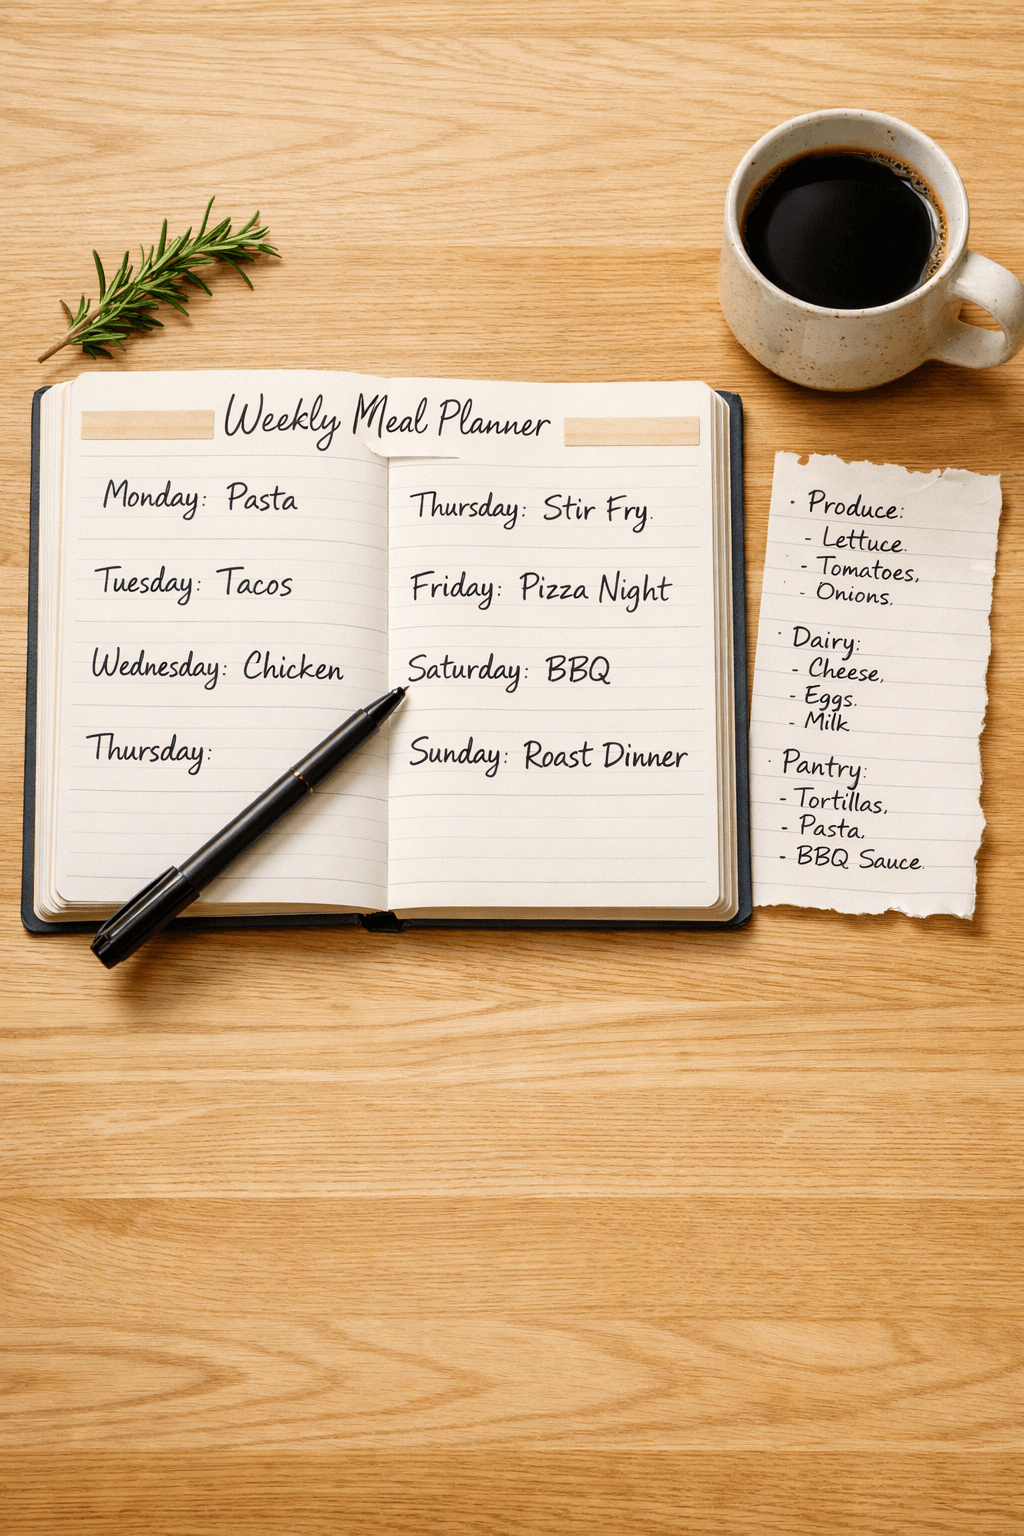 Weekly Meal Planner
Monday: Pasta
Tuesday: Tacos
Wednesday: Chicken
Thursday:
Thursday: Stir Fry.
Friday: Pizza Night
Saturday: BBQ
Sunday: Roast Dinner
· Produce:
- Lettuce.
- Tomatoes,
- Onions.
· Dairy:
- Cheese,
- Eggs.
- Milk
· Pantry:
- Tortillas,
- Pasta,
- BBQ Sauce.